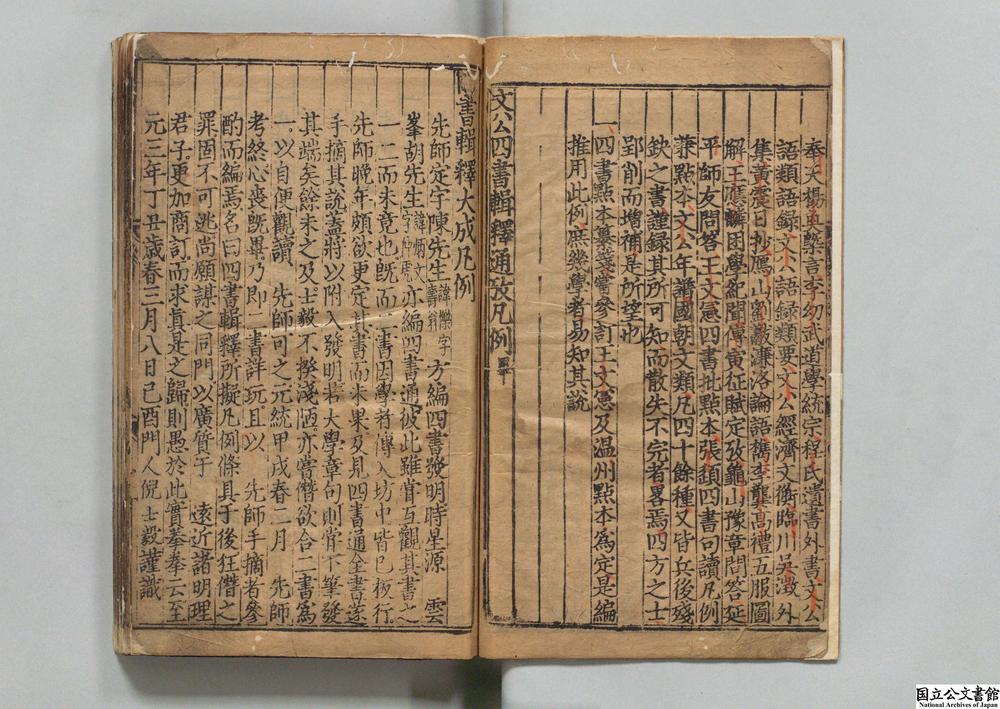 奉天楊㮚言李幼武道學統宗程氏遺書外書文公
語類語錄文公語錄類要文公經濟文衡臨川吳澂外
集黃震日抄鷹山劉嚴濂洛論語襲高禮五服圖
解王應麟困學紀聞傳寅征賦定攷龜山豫章問答延
平師友問答王文憲四書批點本張䪻四書句讀凡例
兼點本文公年譜國朝文類凡四十餘種又皆兵後殘
欽之書謹錄其所可知而散失不完者畧焉四方之士
刪而增補是所望也
一四書點本纂箋嘗參訂王文憲及温州點本爲定是編
推用此例庶幾學者易知其說
文公四書輯釋通攷凡例
書輯釋大成凡例
先師定宇陳先生諱櫟字方編四書發明時星源雲
峯胡先生諱炳文字仲虎亦編四書通彼此雖甞互觀其書之
一二而未竟也旣而二書因學者傳入坊中皆已板行
先師晚年頗欲更定其書而未果及見四書通全書遂
手摘其說蓋將以附入發明若大學章句則甞下筆發
其端矣餘未之及士毅不揆淺陋亦嘗僭欲合二書爲
一以自便觀讀先師可之元統甲戌春二月先師
考終心喪旣畢乃即二書詳玩且以先師手摘者參
酌而編焉名曰四書輯釋所擬凡例條具于後狂僭之
罪固不可逃尚願謀之同門以廣質于遠近諸明理
君子更加商訂而求眞是之歸則愚於此實拳拳云至
元三年丁丑歲春三月八日己酉門人倪士毅謹識
国立公文書館
National Archives of Japan